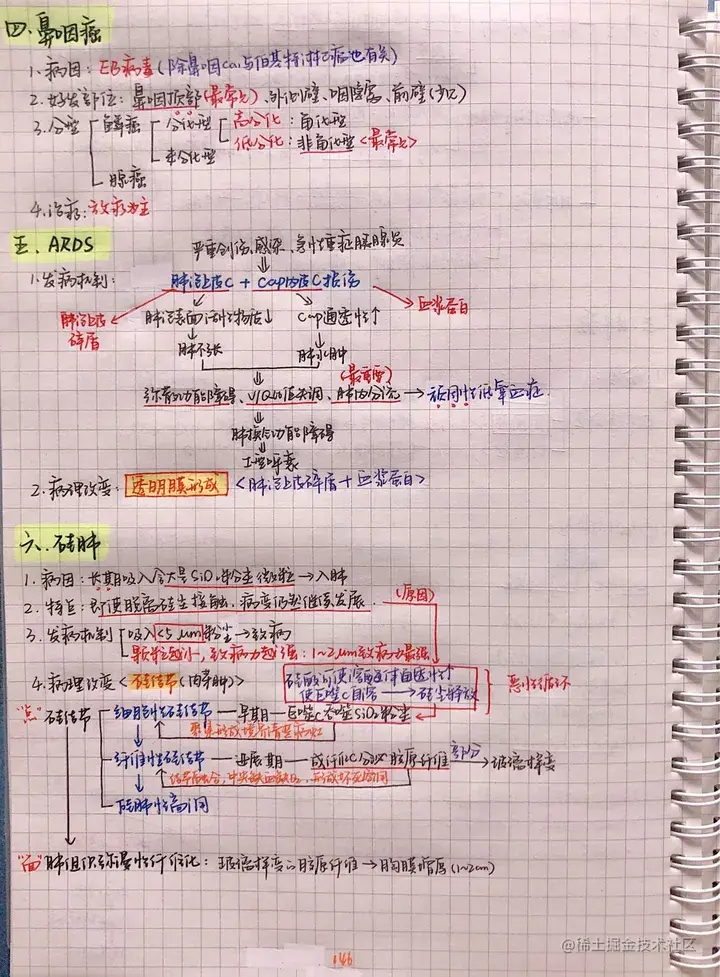 四.鼻咽癌
1.病因：EB病毒(除鼻咽ca,与伯基特淋巴瘤也有关)
2.好发部位：鼻咽顶部(最常见)、外侧壁、咽隐窝、前壁(少见)
3.分型 鳞癌 分化型 高分化：角化型
低分化：非角化型<最常见>
未分化型
腺癌
4.治疗：放疗为主
五.ARDS
严重创伤、感染、急性重症胰腺炎
1.发病机制：肺泡上皮C + Cap内皮C损伤
肺泡上皮碎屑 肺泡表面活性物质↓ Cap通透性↑ 血浆蛋白
肺不张 肺水肿
(最重要)
弥散功能障碍、V/Q比值失调、肺内分流→顽固性低氧血症
肺换气功能障碍
I型呼衰
2.病理改变：透明膜形成<肺泡上皮碎屑+血浆蛋白>
六.硅肺
1.病因：长期吸入含大量SiO₂粉尘微粒→入肺
2.特点：即使脱离硅尘接触，病变仍然继续发展.
(原因)
3.发病机制 吸入<5μm粉尘→致病
颗粒越小，致病力越强：1~2μm致病力最强
4.病理改变<硅结节(肉芽肿)>
使巨噬C自溶→硅尘释放
恶性循环
"点"硅结节 细胞性硅结节—早期—巨噬C吞噬SiO₂粉尘
纤维性硅结节—进展期—成纤维C分泌胶原纤维 部分→玻璃样变
硅肺性空洞
"面"肺组织弥漫性纤维化：玻璃样变的胶原纤维→胸膜增厚(1~2cm)
146
@稀土掘金技术社区